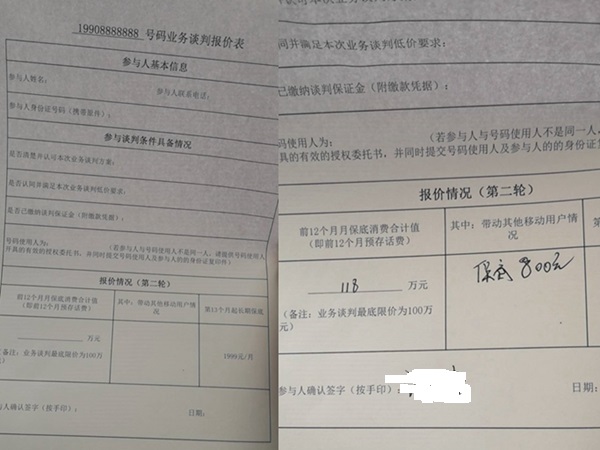 19908888888 号码业务谈判报价表
参与人基本信息
参与人姓名：
参与人联系电话：
参与人身份证号码（携原件）：
参与谈判条件具备情况
是否清楚并认可本次业务谈判方案：
是否认同并满足本次业务谈判低价要求：
是否已缴纳谈判保证金（附缴款凭据）：
号码使用人为： （若参与人与号码使用人不是同一人，请提供号码使用人
并具的有效的授权委托书，并同时提交号码使用人及参与人的的身份证复印件）
报价情况（第二轮）
前12个月月保底消费合计值
（即前12个月预存话费）
其中：带动其他移动用户情
况
第13个月起长期保底
万元
（备注：业务谈判最底限价为100万
元）
1999元/月
参与人确认签字（按手印）：
日期：
同并满足本次业务谈判低价要求：
已缴纳谈判保证金（附缴款凭据）：
号码使用人为： （若参与人与号码使用人不是同一人，
具的有效的授权委托书，并同时提交号码使用人及参与人的的身份证复
报价情况（第二轮）
前12个月月保底消费合计值
（即前12个月预存话费）
其中：带动其他移动用户情
况
118 万元
（备注：业务谈判最底限价为100万
元）
保底800元
参与人确认签字（按手印）：
日期：